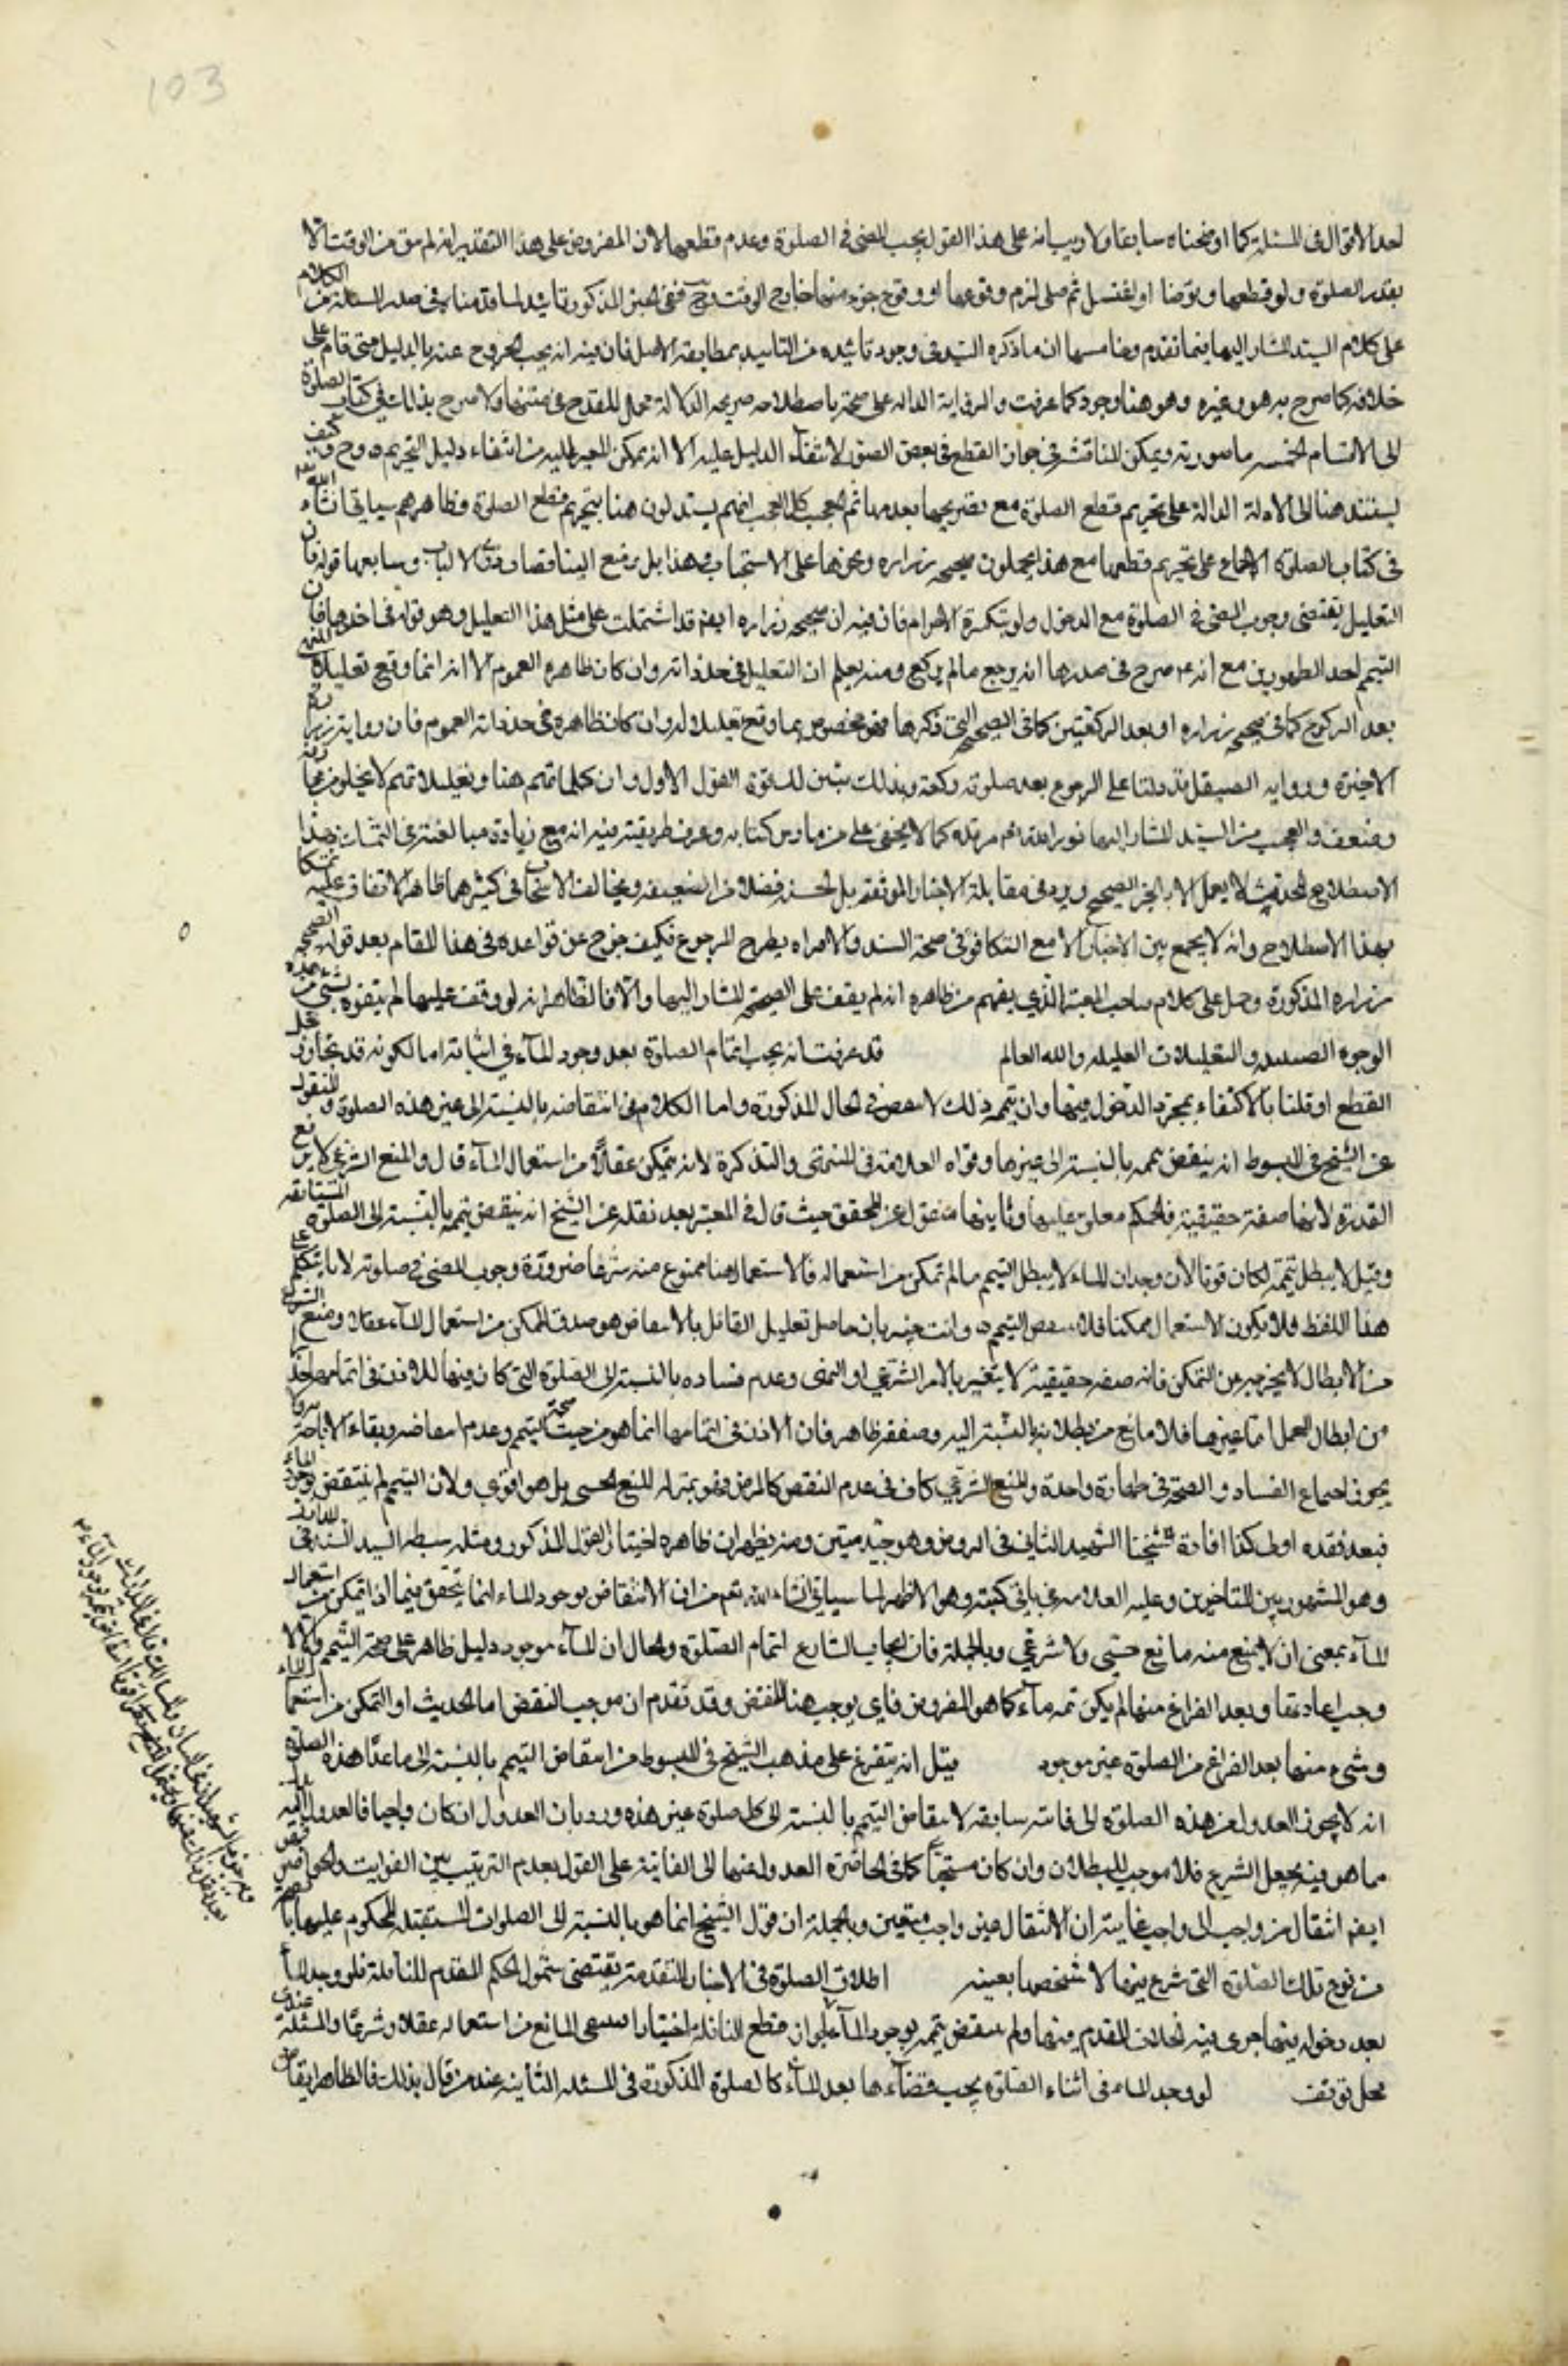 103
احد الاقوال فى المسئلة كما اوضحناه سابقا ولا ريب انه على هذا القول يجب المضى فى الصلوة وعدم قطعها لان المفروض على هذا التقدير انه لم يبق من الوقت الا
بقدر الصلوة ولو قطعها وتوضا او اغتسل ثم صلى لزم وقوعها او وقوع جزء منها خارج الوقت وح ففى الخبر المذكور تائيد لما قدمناه فى صدر المسئلة من الكلام
على كلام السيد المشار اليه فيما تقدم وخامسها ان ما ذكره السيد فى وجود تائيده من التاييد بمطابقة الاصل فان فيه انه يجب الخروج عنه بالدليل متى قام على
خلافه كما صرح به هو وغيره وهو هنا موجود كما عرفت والرواية الدالة على صحة باصطلاحه صريحة الدلالة لا مجال للقدح فى متنها ولا صرح بذلك فى كتاب الصلوة
الى الاقسام الخمسة ما صورته ويمكن المناقشة فى جواز القطع فى بعض الصور لانتفاء الدليل عليه الا انه يمكن المصير اليه من انتفاء دليل التحريم ه وح فكيف
يستند هنا الى الادلة الدالة على تحريم قطع الصلوة مع تصريحه بعدمها ثم العجب كل العجب انهم يستدلون هنا بتحريم قطع الصلوة وظاهرهم سياتى انشاء الله
فى كتاب الصلوة الاجماع على تحريم قطعها مع هذا يحملون صحيحة زراره ونحوها على الاستحباب وسابعها قوله فان
التعليل يقتضى وجوب المضى فى الصلوة مع الدخول ولو بتكبيرة الاحرام فان فيه ان صحيحة زراره ايضم قد اشتملت على مثل هذا التعليل وهو قوله فى اخرها فان
التيمم احد الطهورين مع انه ع صرح فى صدرها انه يرجع ما لم يركع ومنه يعلم ان التعليل فى حد ذاته وان كان ظاهره العموم الا انه انما وقع تعليلا
بعد الركوع كما فى صحيحة زراره او بعد الركعتين كما فى الصحيحة التى ذكرها فهو مخصوص بما وقع تعليلا له وان كان ظاهره فى حد ذاته العموم فان رواية زراره
الاخيرة ورواية الصيقل قد دلتا على الرجوع بعد صلوته ركعة وبذلك تبين لك قوة القول الاول وان كلماتهم هنا وتعليلاتهم لا يخلو من
وضعف والعجب من السيد المشار اليه نور الله تعم مرقده كما لا يخفى على من مارس كتابه وعرف طريقته فيه انه مع زيادة مبالغته فى التمسك بهذا
الاصطلاح المحدث لا يعمل الا بالخبر الصحيح ويرد فى مقابلة الاخبار الموثقة بل الحسنة فضلا عن الضعيفة ويخالف الاصحاب فى كثير مما ظاهر الاتفاق عليه تمسكا
بهذا الاصطلاح وانه لا يجمع بين الاخبار الا مع التكافؤ فى صحة السند والا فتراه يطرح المرجوع فكيف خرج عن قواعده فى هذا المقام بعد قوله الصحيحة
زراره المذكورة وحمل على كلام صاحب المعتبر الذى يفهم من ظاهره انه لم يقف على الصحيحة المشار اليها والا فالظاهر انه لو وقف عليها لم يتفوه بشئ من هذه
الوجوه والتعليلات العليلة والله العالم قد عرفت انه يجب اتمام الصلوة بعد وجود الماء فى اثنائه اما لكونه قد تجاوز محل
القطع او قلنا بالاكتفاء بمجرد الدخول فيها وان تيممه ذلك لا ينتقض فى الحال المذكورة واما الكلام فى انتقاضه بالنسبة الى غير هذه الصلوة والمنقول
عن الشيخ فى المبسوط انه ينتقض تيممه بالنسبة الى غيرها وقواه العلامة فى المنتهى والتذكرة لانه متمكن عقلا من استعمال الماء قال والمنع الشرعى لا يرفع
القدرة لانها صفة حقيقية فالحكم معلق عليها وثانيهما منقول عن المحقق حيث قال فى المعتبر بعد نقله عن الشيخ انه ينتقض تيممه بالنسبة الى الصلوة المستقبلة
وقيل لا يبطل تيممه لكان قويا لان وجدان الماء لا يبطل التيمم ما لم يتمكن من استعماله فالاستعمال هنا ممنوع منه شرعا ضرورة وجوب المضى فى صلوته لا يقال
هذا اللفظ فلا يكون الاستعمال ممكنا فلا ينتقض التيمم ه وانت خبير بان حاصل تعليل القائل بالانتقاض هو صدق التمكن من استعمال الماء عقلا ومنع الشرع
من الابطال لا يخرجه عن التمكن فانه صفة حقيقية لا يتغير بالامر الشرعى او النهى وعدم فساده بالنسبة الى الصلوة التى كان فيها للاذن فى اتمامها
من ابطال العمل اما غيرها فلا مانع من بطلانه بالنسبة اليه وضعفه ظاهر فان الاذن فى اتمامها انما هو من حيث صحة التيمم وعدم انتقاضه وبقاء الاباحة
اجتماع الفساد والصحة فى طهارة واحدة والمنع الشرعى كاف فى عدم النقض كالمرض فهو بمنزلة المنع الحسى بل هو اقوى ولان التيمم لم ينتقض بوجود الماء
فبعد فقده اولى كذا افاده شيخنا الشهيد الثانى فى الروض وهو جيد متين ومنه يظهر ان ظاهره اختيار القول المذكور ومثله سبطه السيد السند فى المدارك
وهو المشهور بين المتاخرين وعليه العلامة فى باقى كتبه وهو الاظهر لما سياتى انشاء الله تعم من ان الانتقاض بوجود الماء انما يتحقق فيما اذا تمكن من استعمال
الماء بمعنى ان لا يمنع منه مانع حسى ولا شرعى وبالجملة فان ايجاب الشارع اتمام الصلوة والحال ان الماء موجود دليل ظاهر على صحة التيمم والا
وجب اعادتها وبعد الفراغ منها لم يكن ثمه ماء كما هو المفروض فاى يوجب هنا النقض وقد تقدم ان موجب النقض اما الحدث او التمكن من استعمال الماء
وشئ منهما بعد الفراغ من الصلوة غير موجود قيل انه يتفرع على مذهب الشيخ فى المبسوط من انتقاض التيمم بالنسبة الى ما عدا هذه الصلوة
انه لا يجوز العدول عن هذه الصلوة الى فائتة سابقة لانتقاض التيمم بالنسبة الى كل صلوة غير هذه ورد بان العدول ان كان واجبا فالمعدول اليه
مما هو فيه بجعل الشرع فلا موجب للبطلان وان كان مستحبا كما فى الحاضرة المعدول عنها الى الفائتة على القول بعدم الترتيب بين الفوايت والحواضر
ايضم انتقال من واجب الى واجب غايته ان الانتقال غير واجب متعين وبالجملة ان قول الشيخ انما هو بالنسبة الى الصلوات المستقبلة المحكوم عليها
من نوع تلك الصلوة التى شرع فيها لا شخصها بعينه اطلاق الصلوة فى الاخبار المتقدمة يقتضى شمول الحكم المقدم للنافلة فلو وجد الماء
بعد دخوله فيها جرى فيه الخلاف المقدم فيها ولم ينتقض تيممه بوجود الماء لجواز قطع النافلة اختيارا المانع من استعماله عقلا وشرعا والمسئلة عندى
محل توقف لو وجد الماء فى اثناء الصلوة يجب قضاءها بعد الماء كالصلوة المذكورة فى المسئلة الثانية عند من قال بذلك فالظاهر